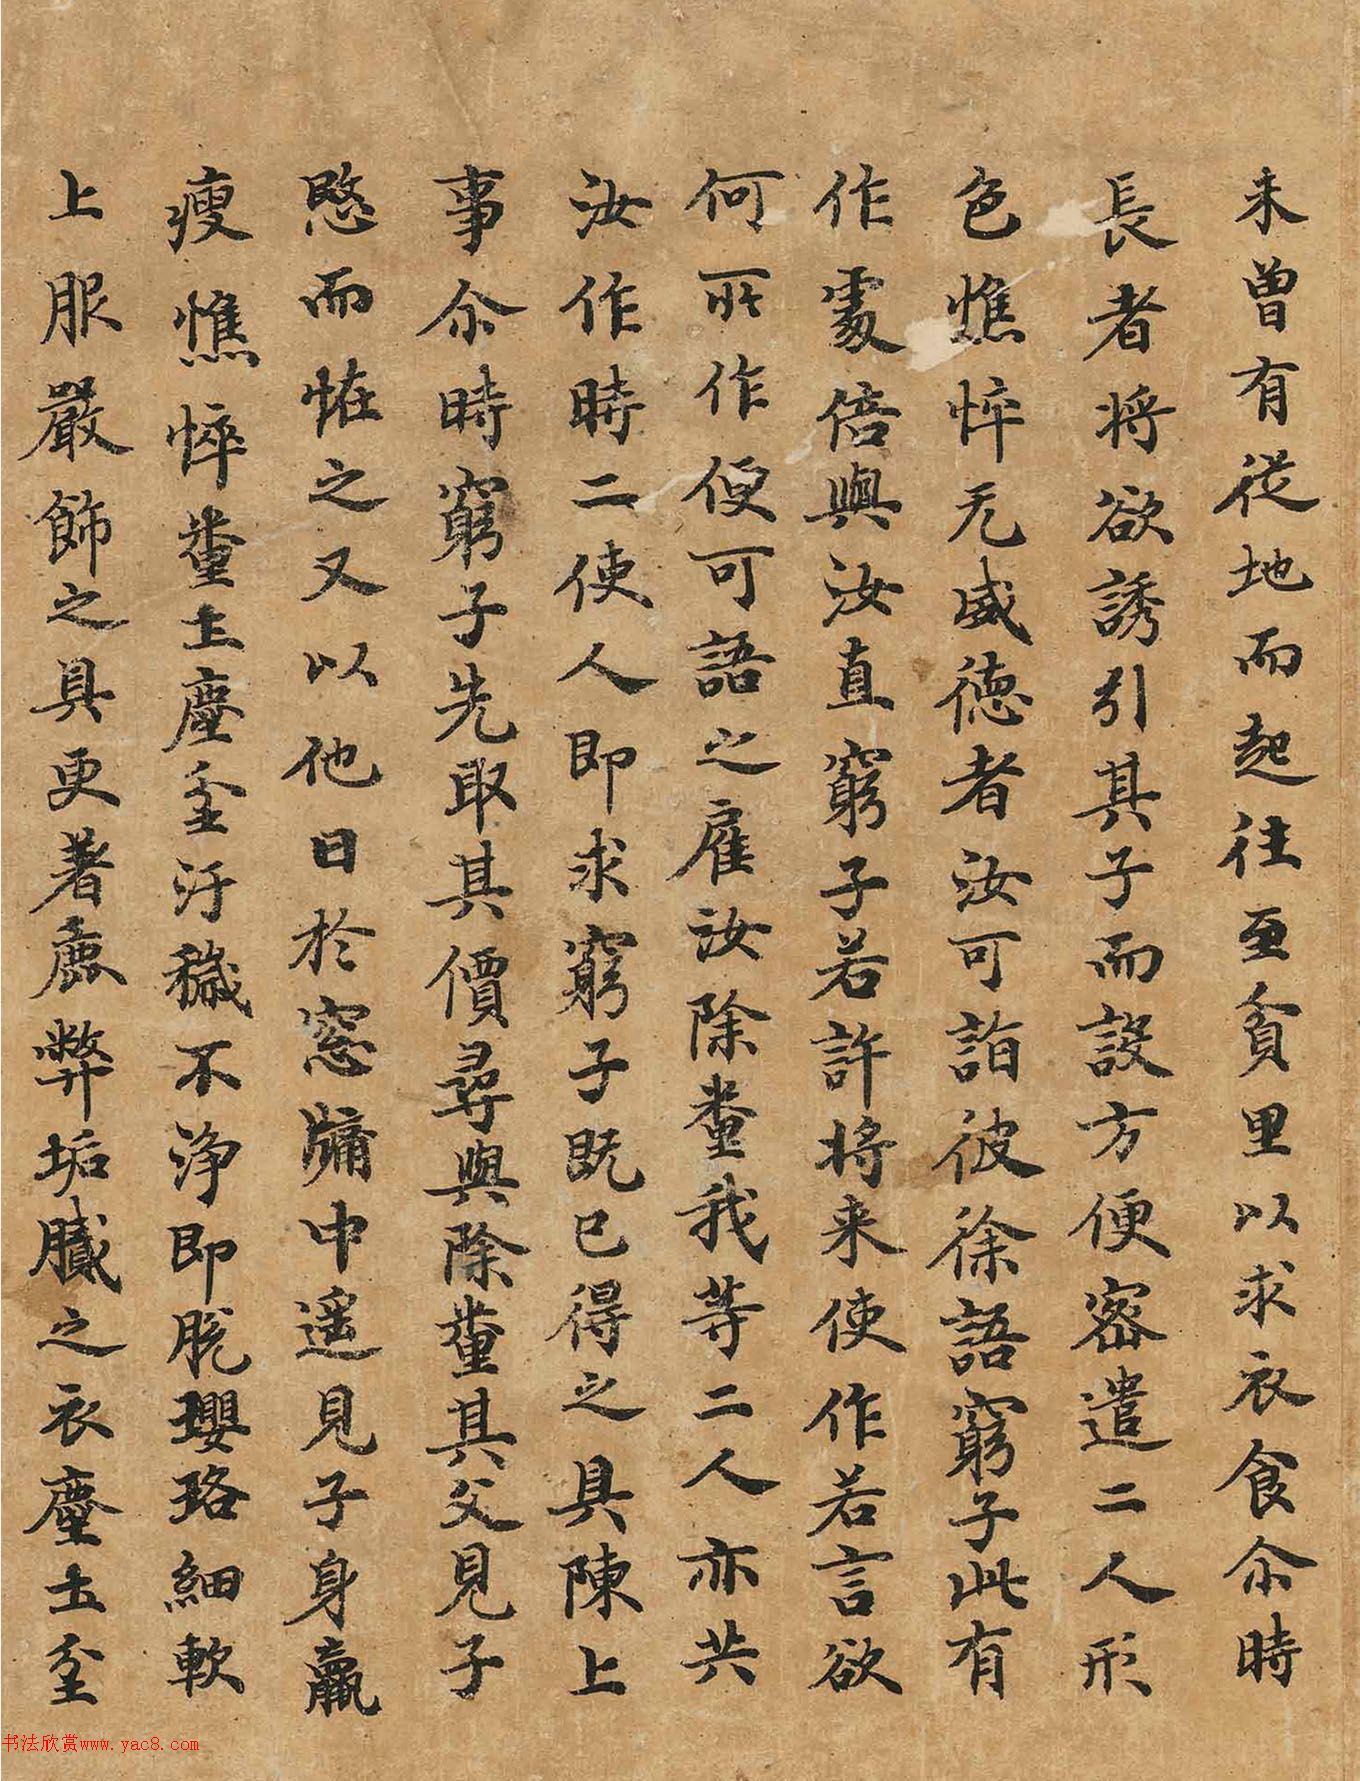 未曾有従地而起往至貧里以求衣食尒時
長者将欲誘引其子而設方便密遣二人形
色憔悴无威徳者汝可詣彼徐語窮子此有
作處倍與汝直窮子若許将来使作若言欲
何所作便可語之雇汝除糞我等二人亦共
汝作時二使人即求窮子既已得之具陳上
事尒時窮子先取其價尋與除糞其父見子
愍而恠之又以他日於窓牖中遥見子身羸
瘦憔悴糞土塵坌汙穢不浄即脫瓔珞細軟
上服嚴飾之具更著麁弊垢膩之衣塵土坌
书法欣赏www.yac8.com